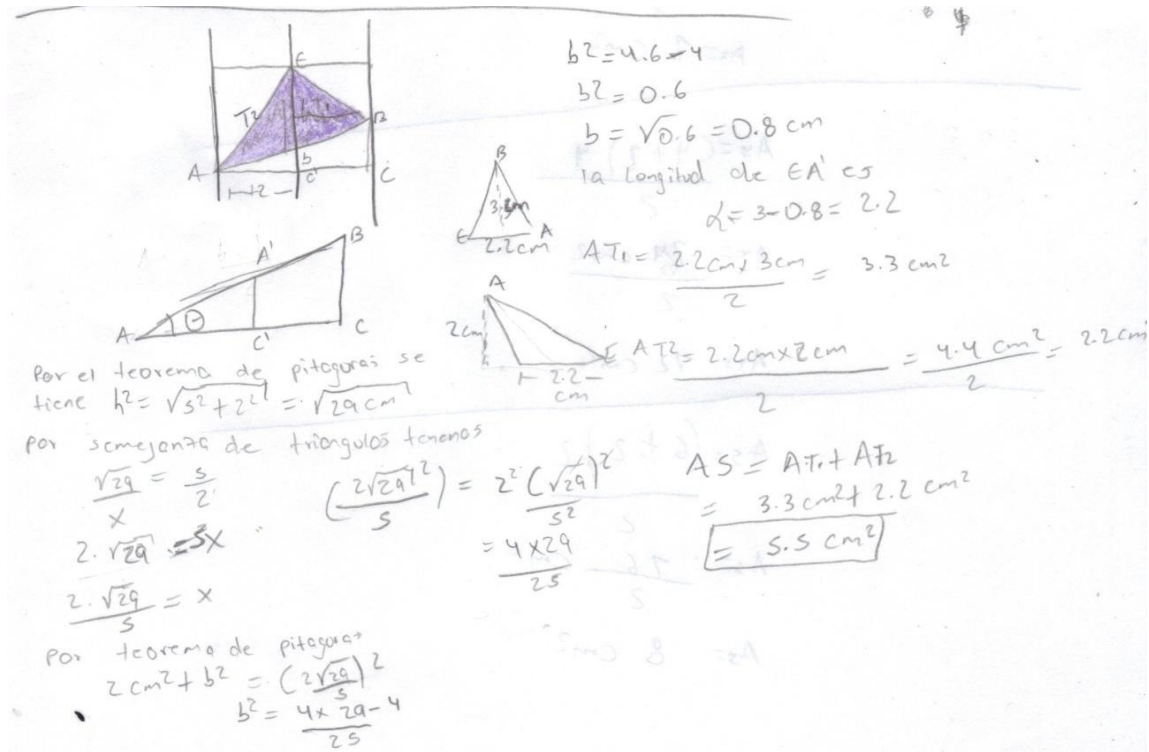 E
T2
h
T1
B
A
b
C'
C
2
A'
B
A
θ
C'
C
Por el teorema de pitagoras se
tiene h² = √5²+2² = √29 cm
Por semejanza de triangulos tenemos
√29/x = 5/2
2·√29 = 5x
2·√29/5 = x
(2√29/5)² = 2²(√29)²/5²
= 4×29/25
Por teorema de pitagoras
2cm²+b² = (2√29/5)²
b² = 4×29-4/25
b² = 4.6-4
b² = 0.6
b = √0.6 = 0.8 cm
la longitud de EA' es
L = 3-0.8 = 2.2
B
E
A
2.2cm
AT1 = 2.2cm x 3cm/2 = 3.3 cm²
A
2cm
E
2.2
cm
AT2 = 2.2cm x 2cm/2 = 4.4 cm²/2 = 2.2 cm
AS = AT1 + AT2
= 3.3 cm² + 2.2 cm²
= 5.5 cm²